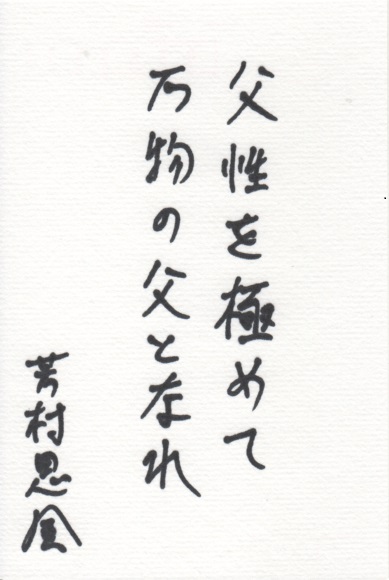 父性を極めて
万物の父となれ
芳村思風